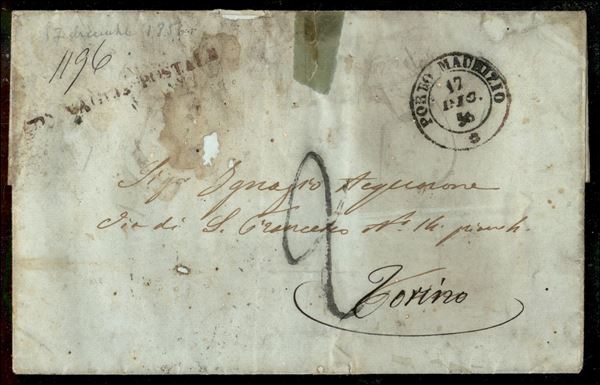 17 dicembre 1856
1196
POSTALE
PORTO MAURIZIO
17
DIC.
56
8
Sigr Ignazio Acquarone
Via di S. Francesco No 14 piano
2
Torino